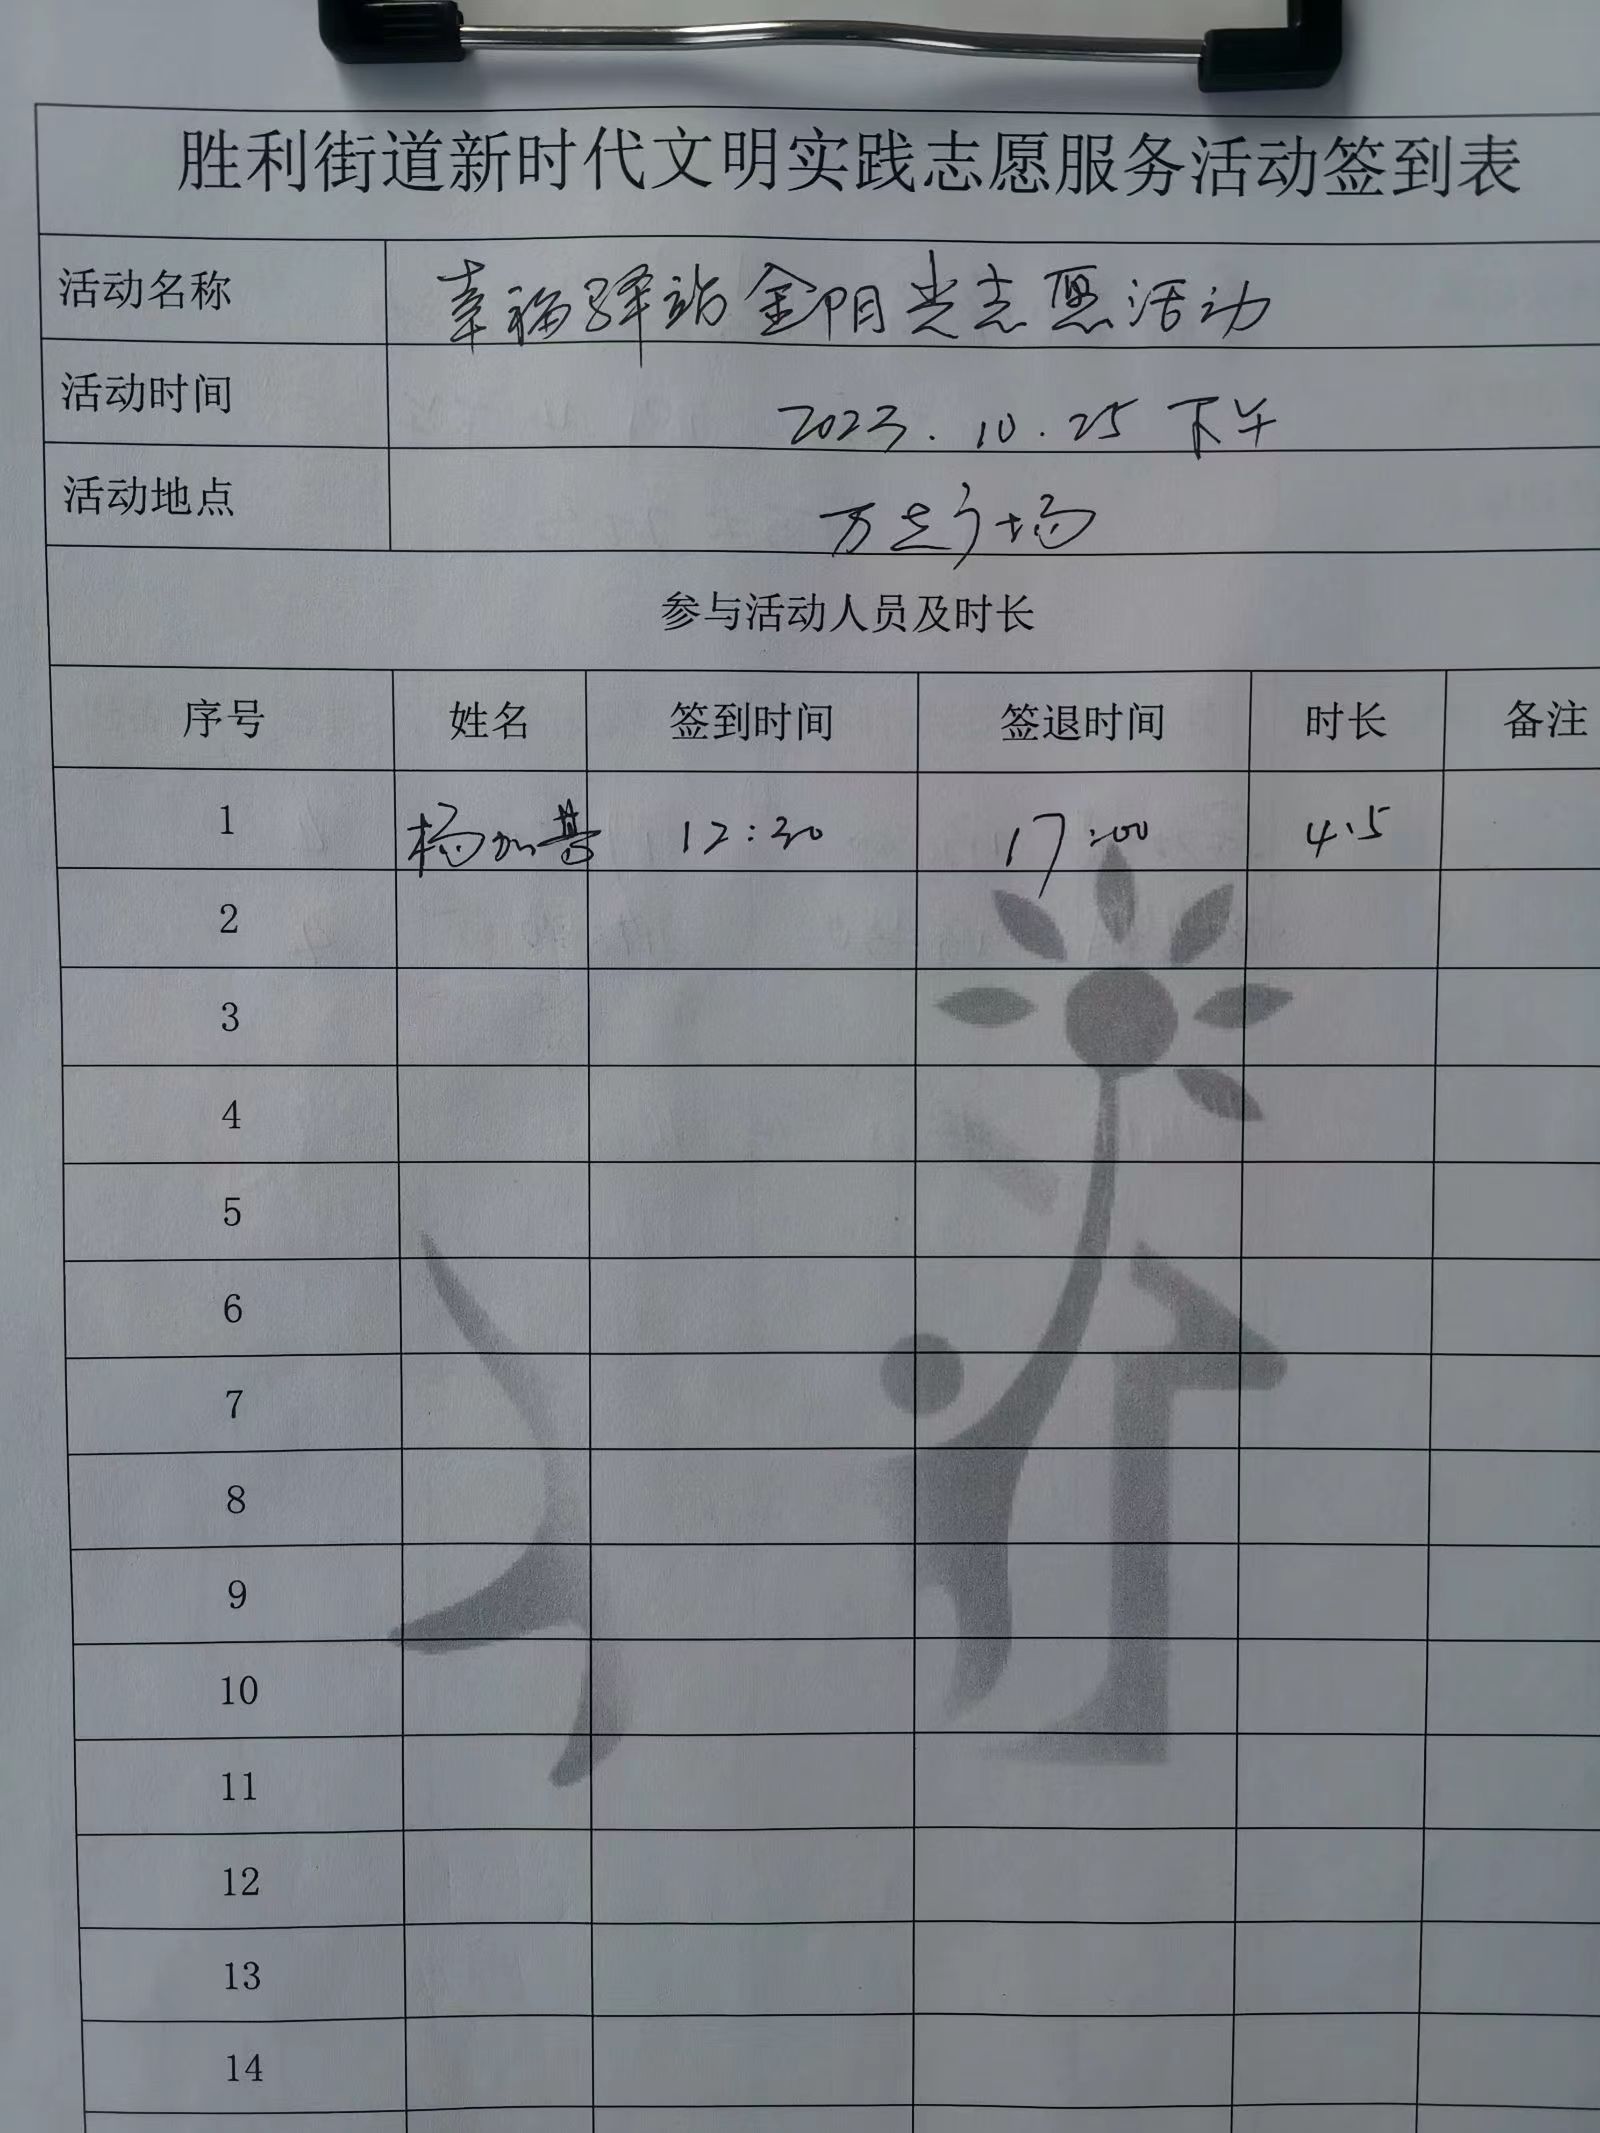 胜利街道新时代文明实践志愿服务活动签到表
活动名称 幸福驿站金阳光志愿活动
活动时间 2023.10.25 下午
活动地点 万达广场
参与活动人员及时长
序号 姓名 签到时间 签退时间 时长 备注
1 杨加 12:30 17:00 4.5
2
3
4
5
6
7
8
9
10
11
12
13
14